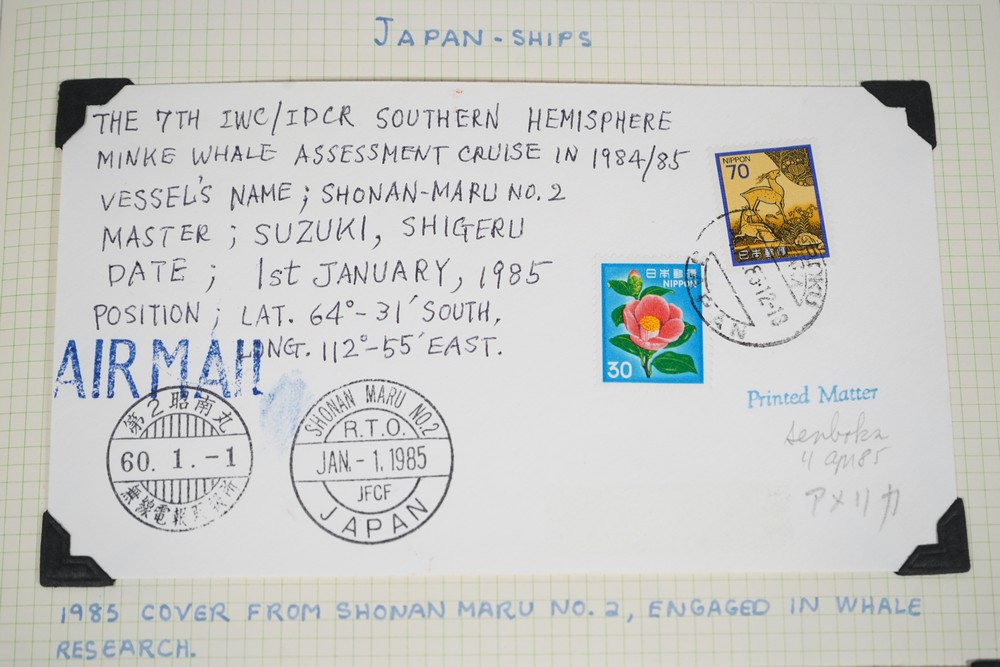 JAPAN - SHIPS
THE 7TH IWC/IDCR SOUTHERN HEMISPHERE
MINKE WHALE ASSESSMENT CRUISE IN 1984/85
VESSEL'S NAME ; SHONAN-MARU NO. 2
MASTER ; SUZUKI, SHIGERU
DATE ; 1st JANUARY, 1985
POSITION ; LAT. 64°-31' SOUTH,
LONG. 112°-55' EAST.
AIR MAIL
NIPPON
70
日本郵便
日本郵便
NIPPON
30
JAPAN
Printed Matter
アメリカ
第2昭南丸
60. 1. -1
無線電報
SHONAN MARU NO.2
R.T.O.
JAN. - 1. 1985
JFCF
JAPAN
1985 COVER FROM SHONAN MARU NO. 2, ENGAGED IN WHALE
RESEARCH.